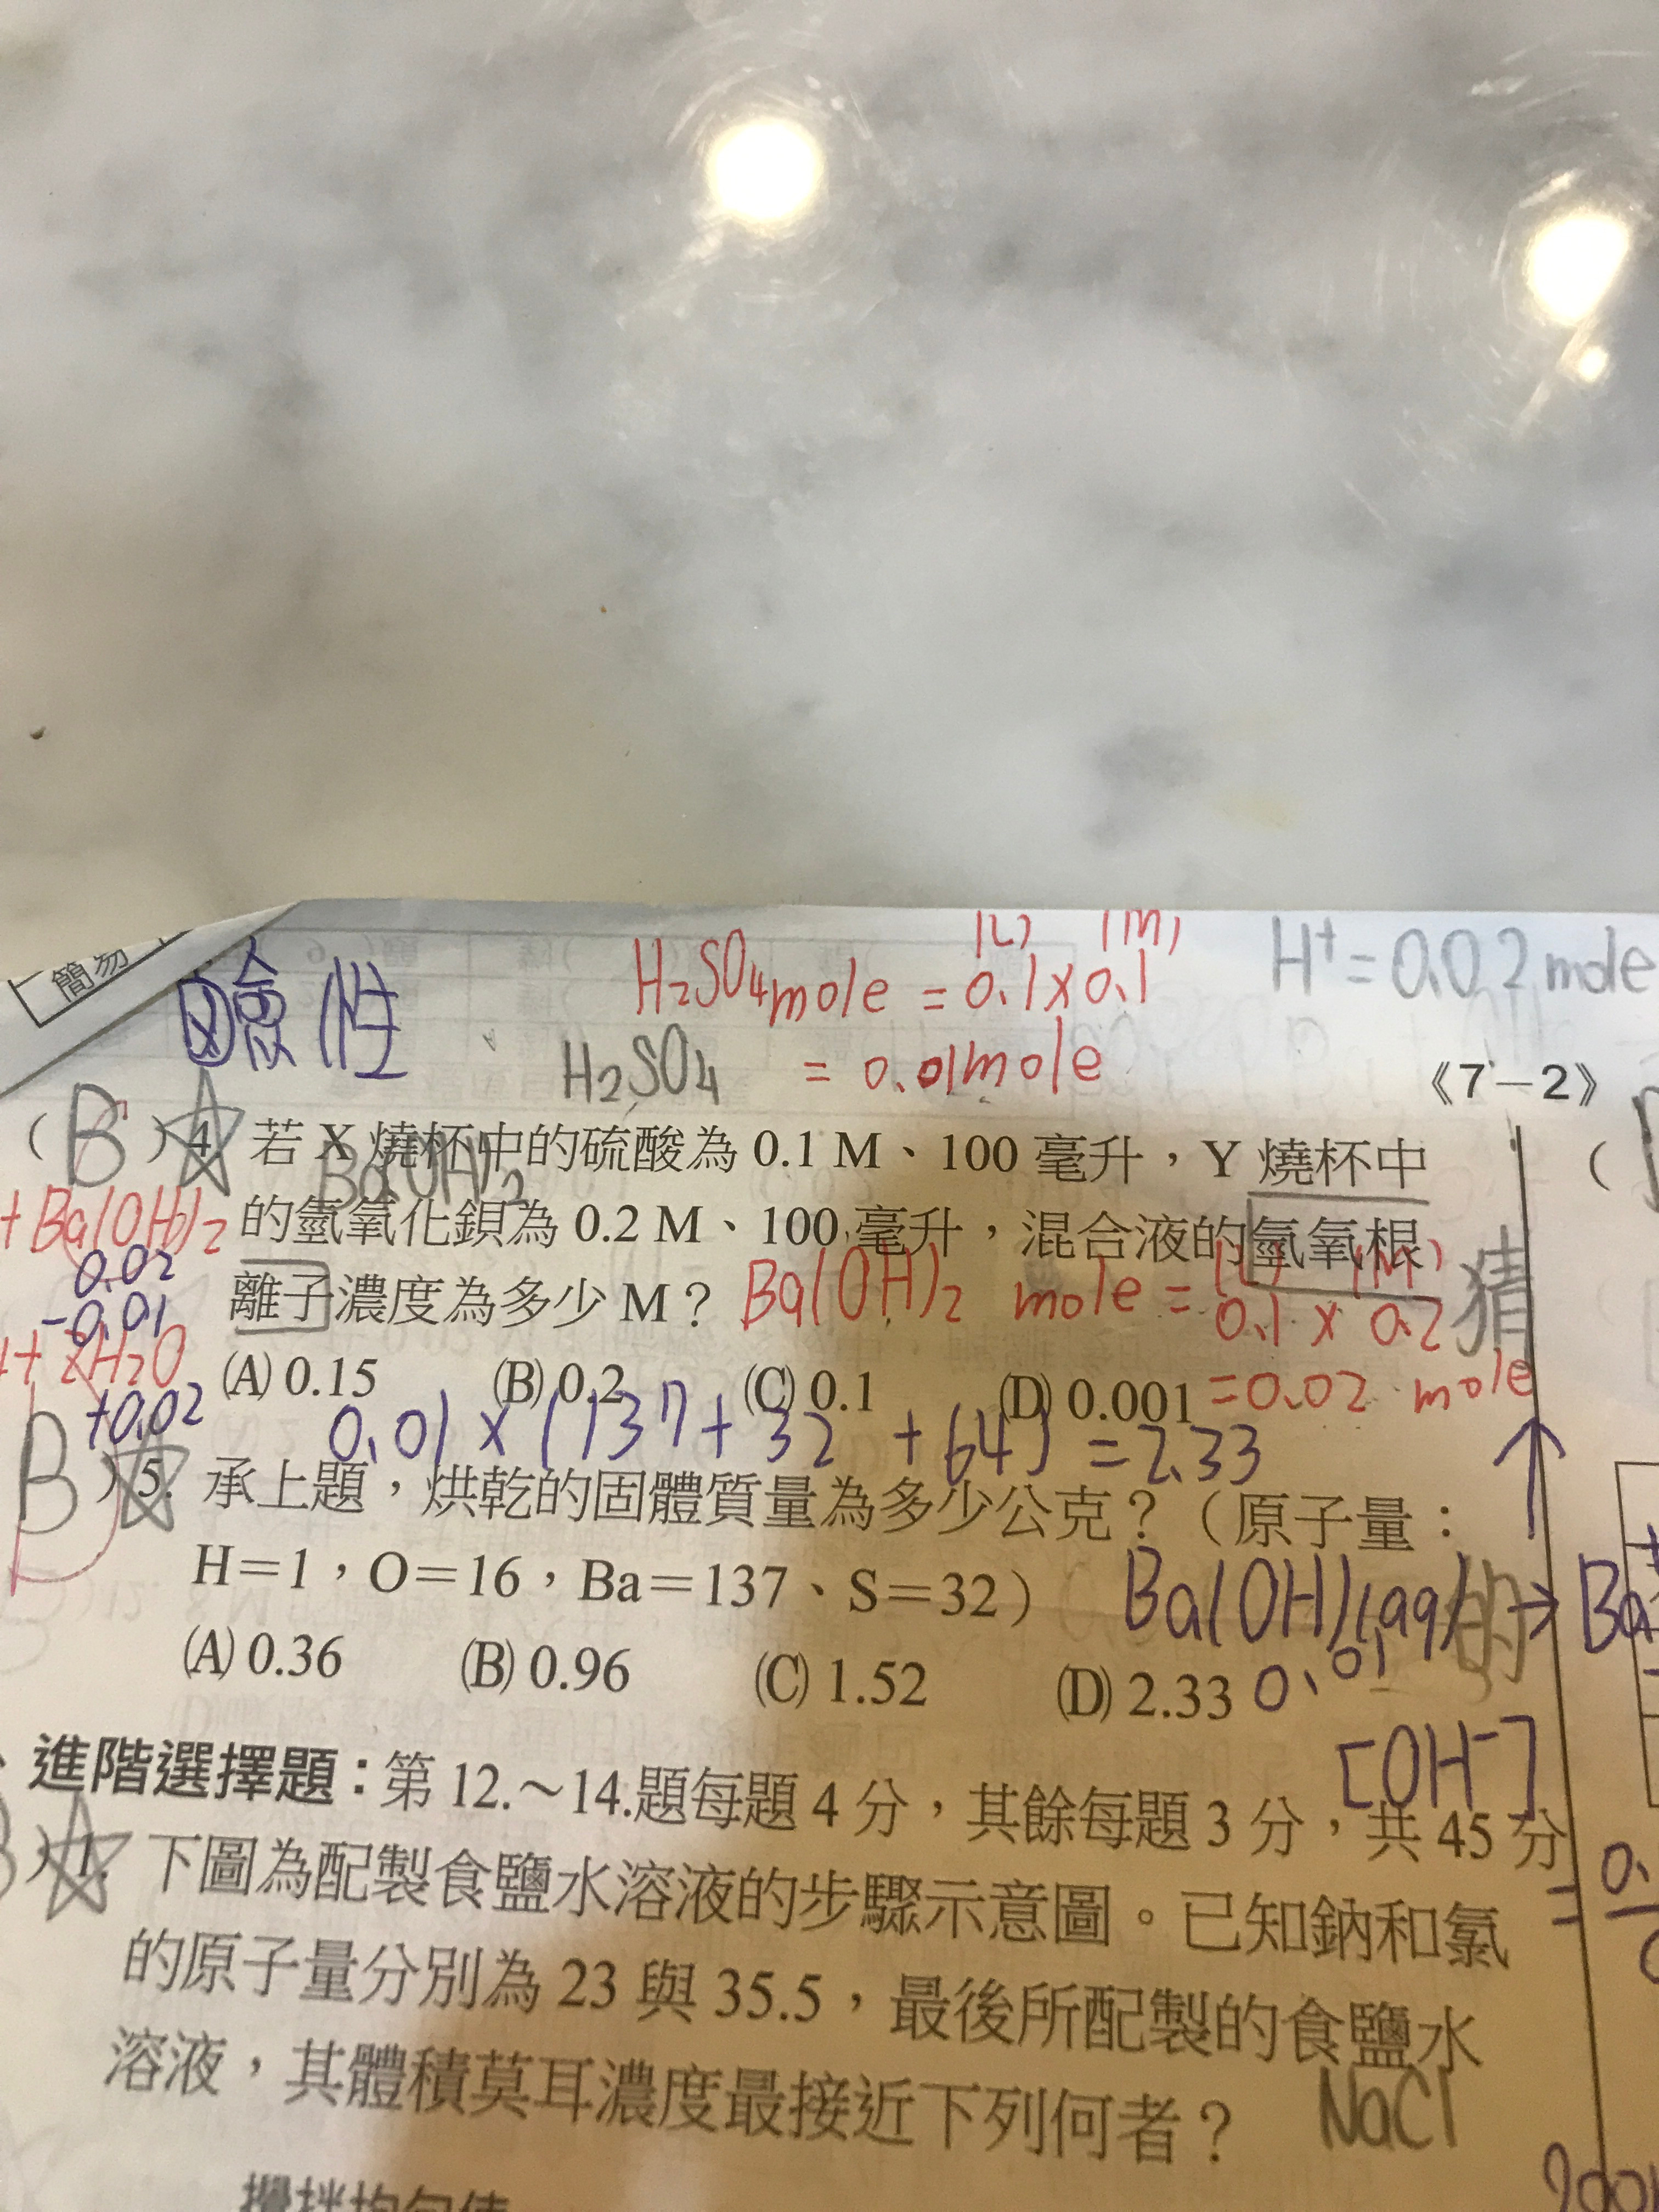 簡易
鹼性
H₂SO₄ mole = 0.1 × 0.1
(L) (M)
= 0.01 mole
H⁺ = 0.02 mole
H₂SO₄
《7－2》
( B ) 4. 若 X 燒杯中的硫酸為 0.1 M、100 毫升，Y 燒杯中
Ba(OH)₂
+ Ba(OH)₂
的氫氧化鋇為 0.2 M、100 毫升，混合液的氫氧根
0.02
-0.01
離子濃度為多少 M？
Ba(OH)₂ mole = 0.1 × 0.2
(L) (M)
猜
+ 2H₂O
+0.02
(A) 0.15 (B) 0.2 (C) 0.1 (D) 0.001
= 0.02 mole
0.01 × (137 + 32 + 64) = 2.33
B ) 5. 承上題，烘乾的固體質量為多少公克？（原子量：
H＝1，O＝16，Ba＝137、S＝32）
Ba(OH)(aq) → Ba
的
0.01
(A) 0.36 (B) 0.96 (C) 1.52 (D) 2.33
[OH⁻]
進階選擇題：第 12.～14.題每題 4 分，其餘每題 3 分，共 45 分
) 1. 下圖為配製食鹽水溶液的步驟示意圖。已知鈉和氯
= 0.
的原子量分別為 23 與 35.5，最後所配製的食鹽水
溶液，其體積莫耳濃度最接近下列何者？
NaCl